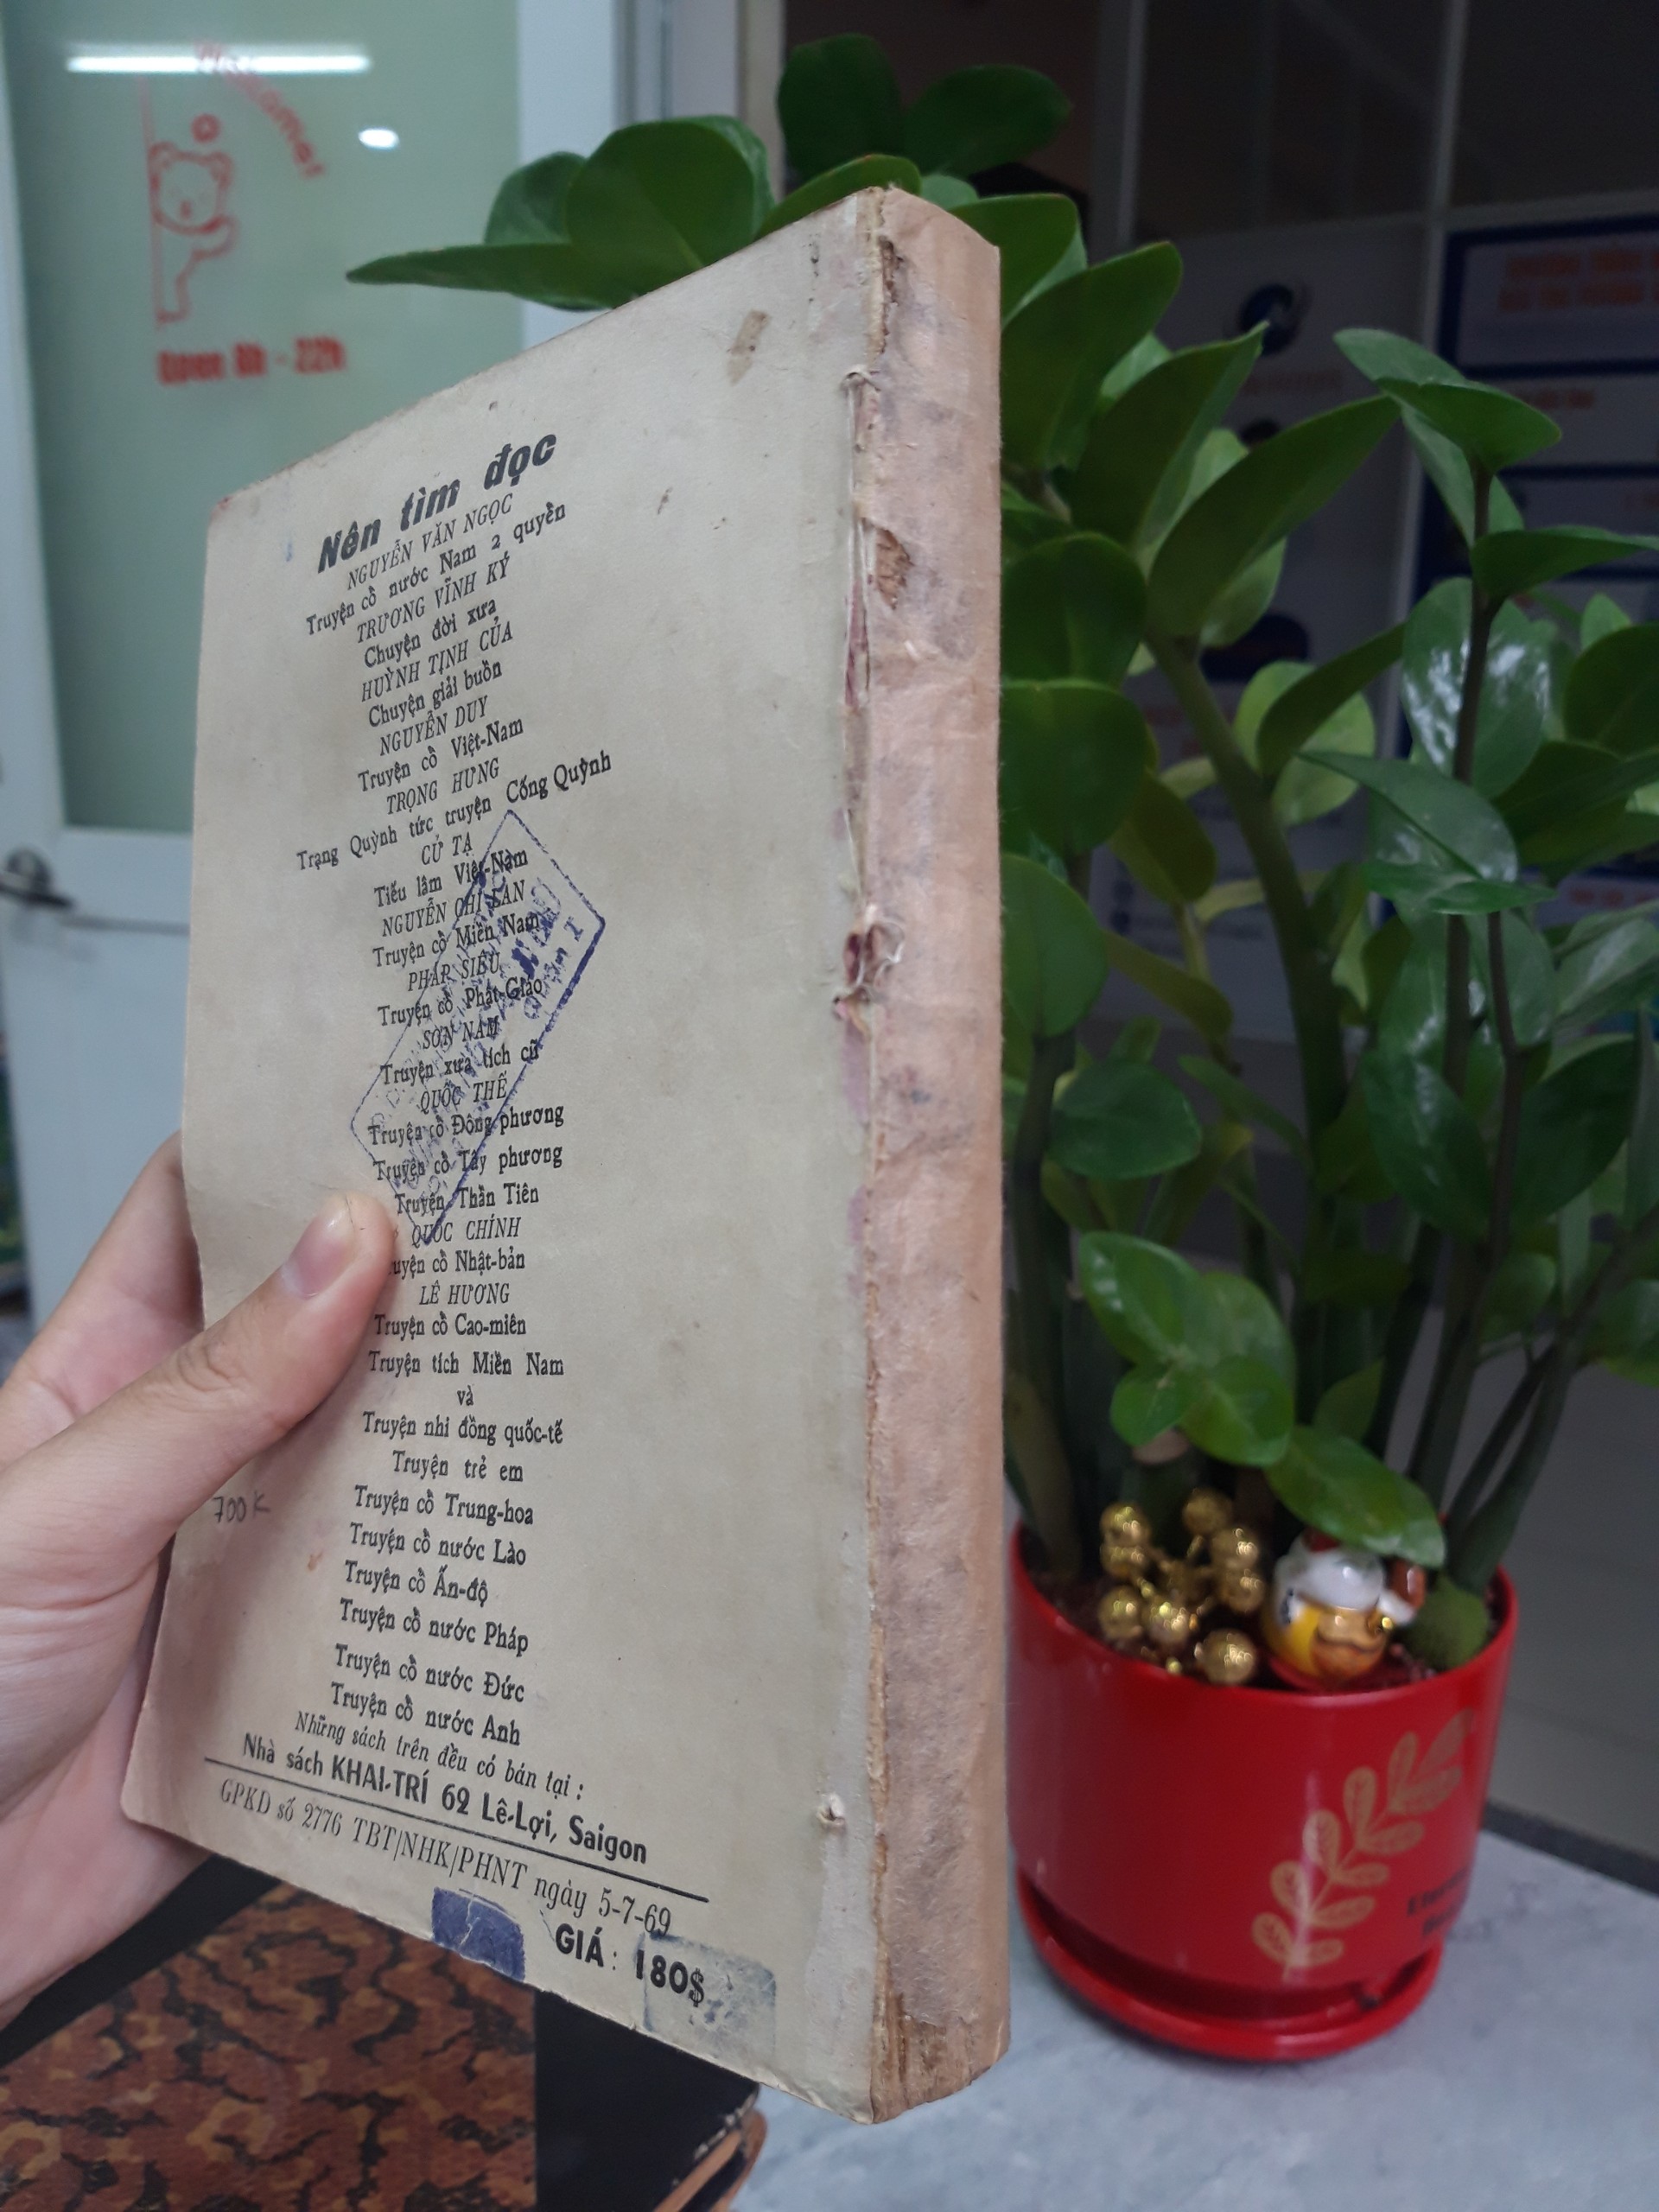 Welcome!
Open 8h - 22h
Nên tìm đọc
NGUYỄN VĂN NGỌC
Truyện cổ nước Nam 2 quyển
TRƯƠNG VĨNH KÝ
Chuyện đời xưa
HUỲNH TỊNH CỦA
Chuyện giải buồn
NGUYỄN DUY
Truyện cổ Việt-Nam
TRỌNG HƯNG
Trạng Quỳnh tức truyện Cống Quỳnh
CỬ TẠ
Tiếu lâm Việt-Nam
NGUYỄN CHÍ LAN
Truyện cổ Miền Nam
PHÁP SIÊU
Truyện cổ Phật-Giáo
SƠN NAM
Truyện xưa tích cũ
QUỐC THẾ
Truyện cổ Đông phương
Truyện cổ Tây phương
Truyện Thần Tiên
QUỐC CHÍNH
uyện cổ Nhật-bản
LÊ HƯƠNG
Truyện cổ Cao-miên
Truyện tích Miền Nam
và
Truyện nhi đồng quốc-tế
Truyện trẻ em
Truyện cổ Trung-hoa
700K
Truyện cổ nước Lào
Truyện cổ Ấn-độ
Truyện cổ nước Pháp
Truyện cổ nước Đức
Truyện cổ nước Anh
Những sách trên đều có bán tại :
Nhà sách KHAI-TRÍ 62 Lê-Lợi, Saigon
GPKD số 2776 TBT/NHK/PHNT ngày 5-7-69
GIÁ : 180$